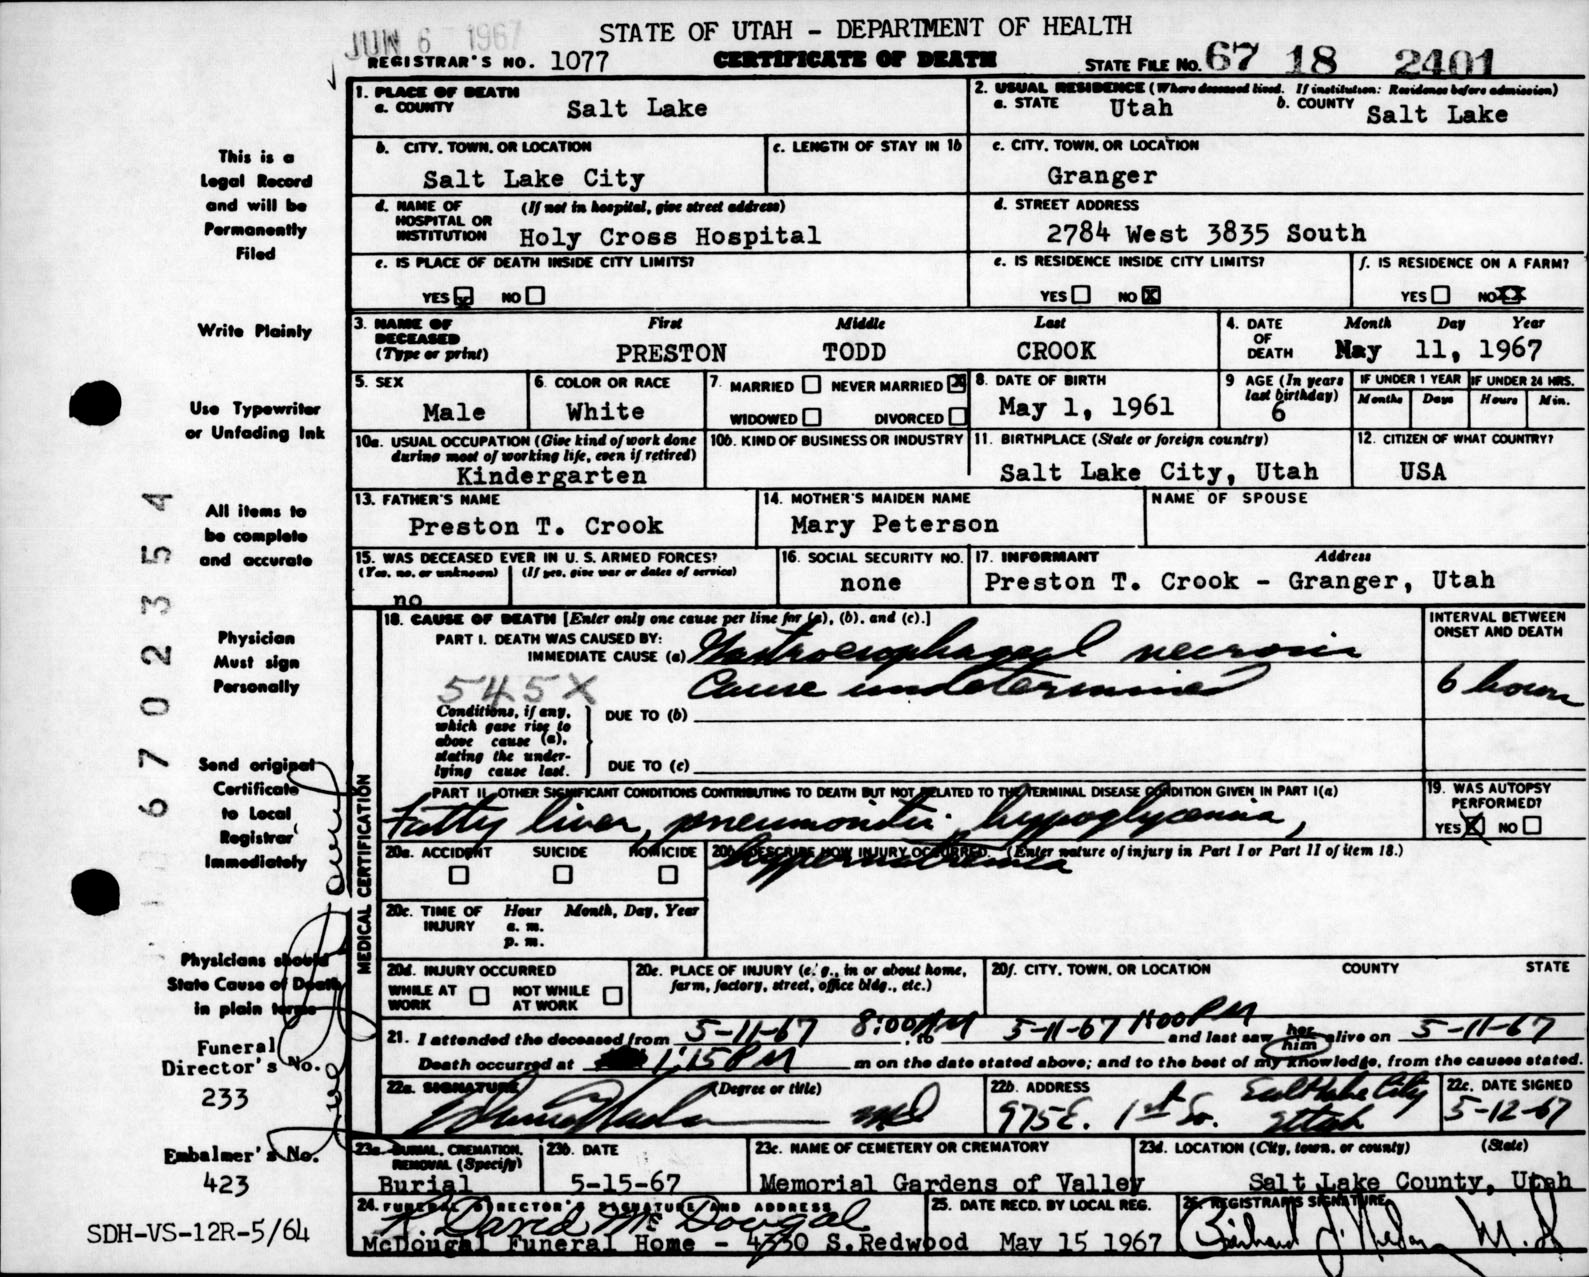 JUN 6 1967
STATE OF UTAH - DEPARTMENT OF HEALTH
REGISTRAR'S NO. 1077 CERTIFICATE OF DEATH STATE FILE NO. 67 18 2401
1. PLACE OF DEATH
a. COUNTY Salt Lake
2. USUAL RESIDENCE (Where deceased lived. If institution: Residence before admission)
a. STATE Utah b. COUNTY Salt Lake
b. CITY, TOWN, OR LOCATION Salt Lake City
c. LENGTH OF STAY IN 1b
c. CITY, TOWN, OR LOCATION Granger
d. NAME OF HOSPITAL OR INSTITUTION (If not in hospital, give street address) Holy Cross Hospital
d. STREET ADDRESS 2784 West 3835 South
e. IS PLACE OF DEATH INSIDE CITY LIMITS?
YES NO
e. IS RESIDENCE INSIDE CITY LIMITS?
YES NO X
f. IS RESIDENCE ON A FARM?
YES NO XX
3. NAME OF DECEASED (Type or print)
First Middle Last
PRESTON TODD CROOK
4. DATE OF DEATH Month Day Year
May 11, 1967
5. SEX Male
6. COLOR OR RACE White
7. MARRIED NEVER MARRIED X
WIDOWED DIVORCED
8. DATE OF BIRTH May 1, 1961
9 AGE (In years last birthday) 6
IF UNDER 1 YEAR Months Days
IF UNDER 24 HRS. Hours Min.
10a. USUAL OCCUPATION (Give kind of work done during most of working life, even if retired)
Kindergarten
10b. KIND OF BUSINESS OR INDUSTRY
11. BIRTHPLACE (State or foreign country)
Salt Lake City, Utah
12. CITIZEN OF WHAT COUNTRY?
USA
13. FATHER'S NAME
Preston T. Crook
14. MOTHER'S MAIDEN NAME
Mary Peterson
NAME OF SPOUSE
15. WAS DECEASED EVER IN U. S. ARMED FORCES?
(Yes, no, or unknown) (If yes, give war or dates of service)
no
16. SOCIAL SECURITY NO.
none
17. INFORMANT Address
Preston T. Crook - Granger, Utah
18. CAUSE OF DEATH [Enter only one cause per line for (a), (b), and (c).]
PART I. DEATH WAS CAUSED BY:
IMMEDIATE CAUSE (a) Gastroesophageal necrosis
Cause undetermined
545X
INTERVAL BETWEEN ONSET AND DEATH
6 hours
Conditions, if any, which gave rise to above cause (a), stating the underlying cause last.
DUE TO (b)
DUE TO (c)
PART II. OTHER SIGNIFICANT CONDITIONS CONTRIBUTING TO DEATH BUT NOT RELATED TO THE TERMINAL DISEASE CONDITION GIVEN IN PART I(a)
Fatty liver, pneumonitis, hypoglycemia,
hypernatremia
19. WAS AUTOPSY PERFORMED?
YES X NO
20a. ACCIDENT SUICIDE HOMICIDE
20b. DESCRIBE HOW INJURY OCCURRED. (Enter nature of injury in Part I or Part II of item 18.)
20c. TIME OF INJURY Hour a. m. p. m. Month, Day, Year
20d. INJURY OCCURRED
WHILE AT WORK NOT WHILE AT WORK
20e. PLACE OF INJURY (e. g., in or about home, farm, factory, street, office bldg., etc.)
20f. CITY, TOWN, OR LOCATION COUNTY STATE
21. I attended the deceased from 5-11-67 8:00 AM to 5-11-67 1:00 PM and last saw her him alive on 5-11-67
Death occurred at 1:15 PM m on the date stated above; and to the best of my knowledge, from the causes stated.
22a. SIGNATURE (Degree or title)
MD
22b. ADDRESS
975 E. 1st So. Salt Lake City Utah
22c. DATE SIGNED
5-12-67
23a. BURIAL, CREMATION, REMOVAL (Specify)
Burial
23b. DATE
5-15-67
23c. NAME OF CEMETERY OR CREMATORY
Memorial Gardens of Valley
23d. LOCATION (City, town, or county) (State)
Salt Lake County, Utah
24. FUNERAL DIRECTOR'S SIGNATURE AND ADDRESS
R. David McDougal
McDougal Funeral Home - 4330 S. Redwood
25. DATE RECD. BY LOCAL REG.
May 15 1967
26. REGISTRAR'S SIGNATURE
MEDICAL CERTIFICATION
This is a
Legal Record
and will be
Permanently
Filed
Write Plainly
Use Typewriter
or Unfading Ink
All items to
be complete
and accurate
Physician
Must sign
Personally
Send original
Certificate
to Local
Registrar
Immediately
Physicians should
State Cause of Death
in plain terms
Funeral
Director's No.
233
Embalmer's No.
423
SDH-VS-12R-5/64
67 02354